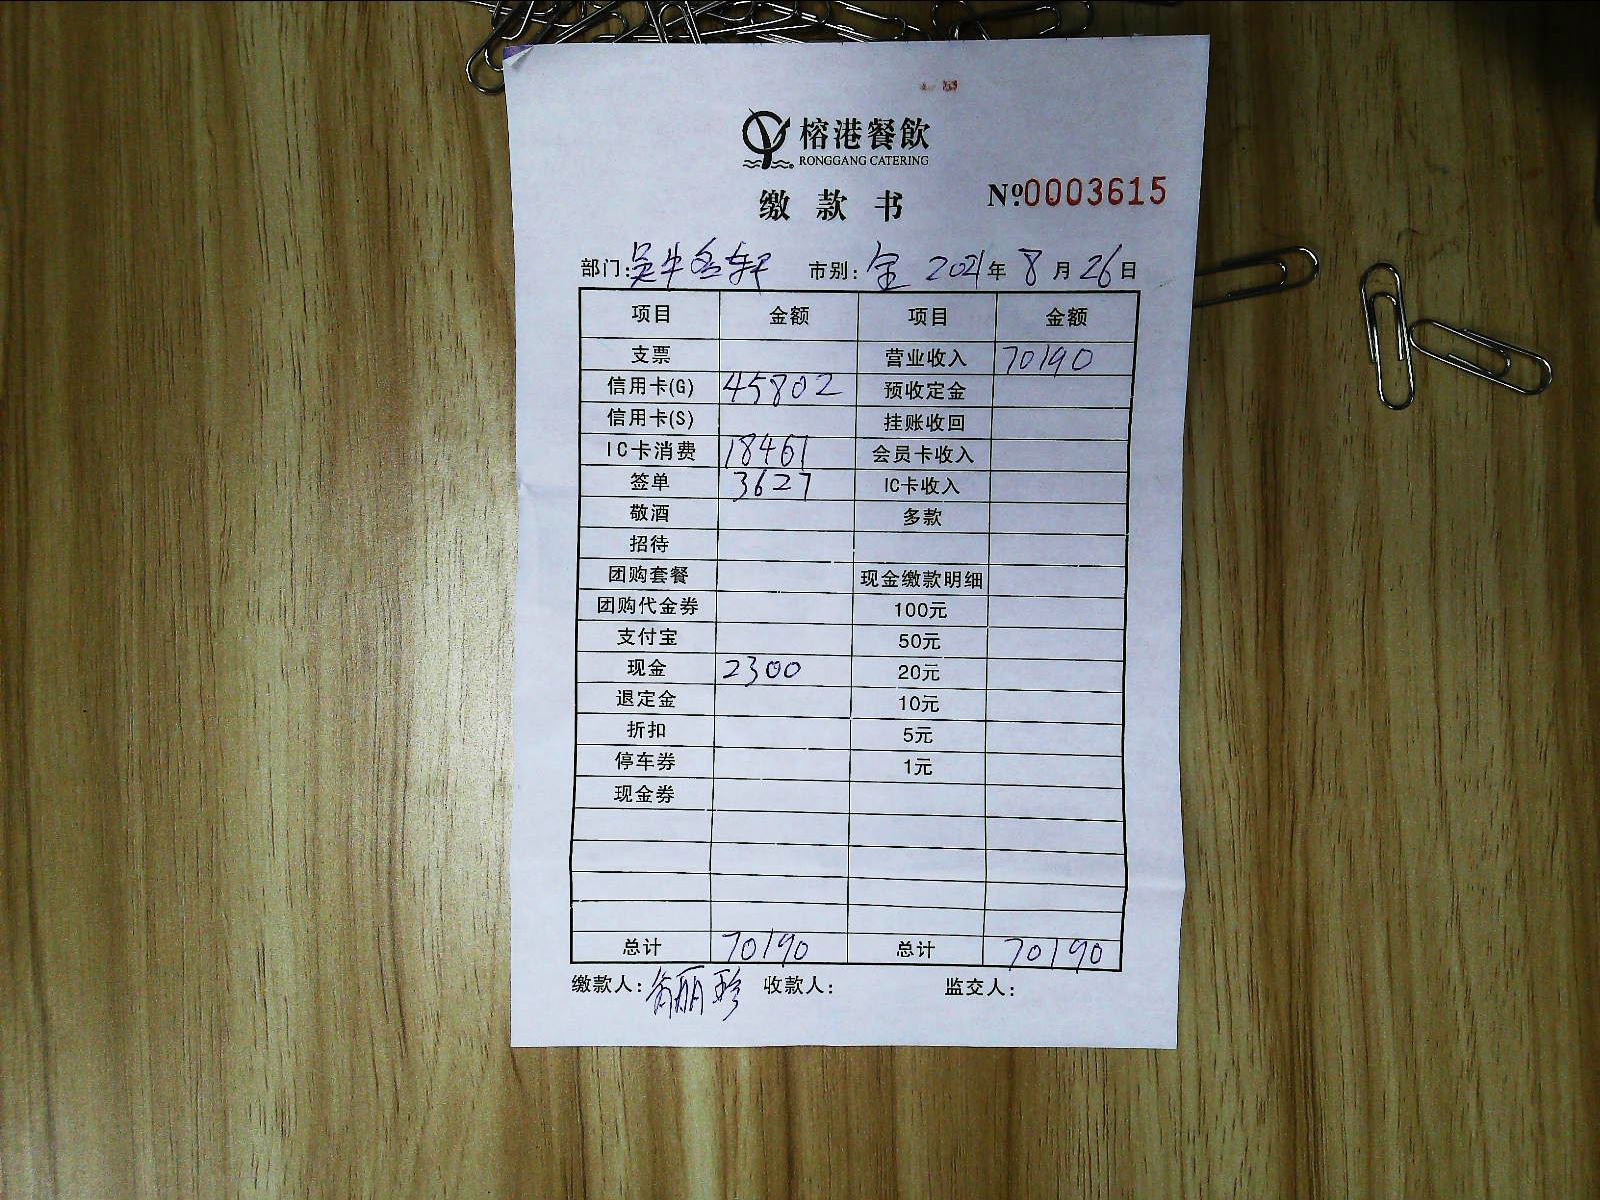 榕港餐飲
RONGGANG CATERING
缴款书 Nº0003615
部门: 市别:全 2021年8月26日
项目 金额 项目 金额
支票 营业收入 70190
信用卡(G) 45802 预收定金
信用卡(S) 挂账收回
IC卡消费 18461 会员卡收入
签单 3627 IC卡收入
敬酒 多款
招待
团购套餐 现金缴款明细
团购代金券 100元
支付宝 50元
现金 2300 20元
退定金 10元
折扣 5元
停车券 1元
现金券
总计 70190 总计 70190
缴款人: 丽珍 收款人: 监交人: